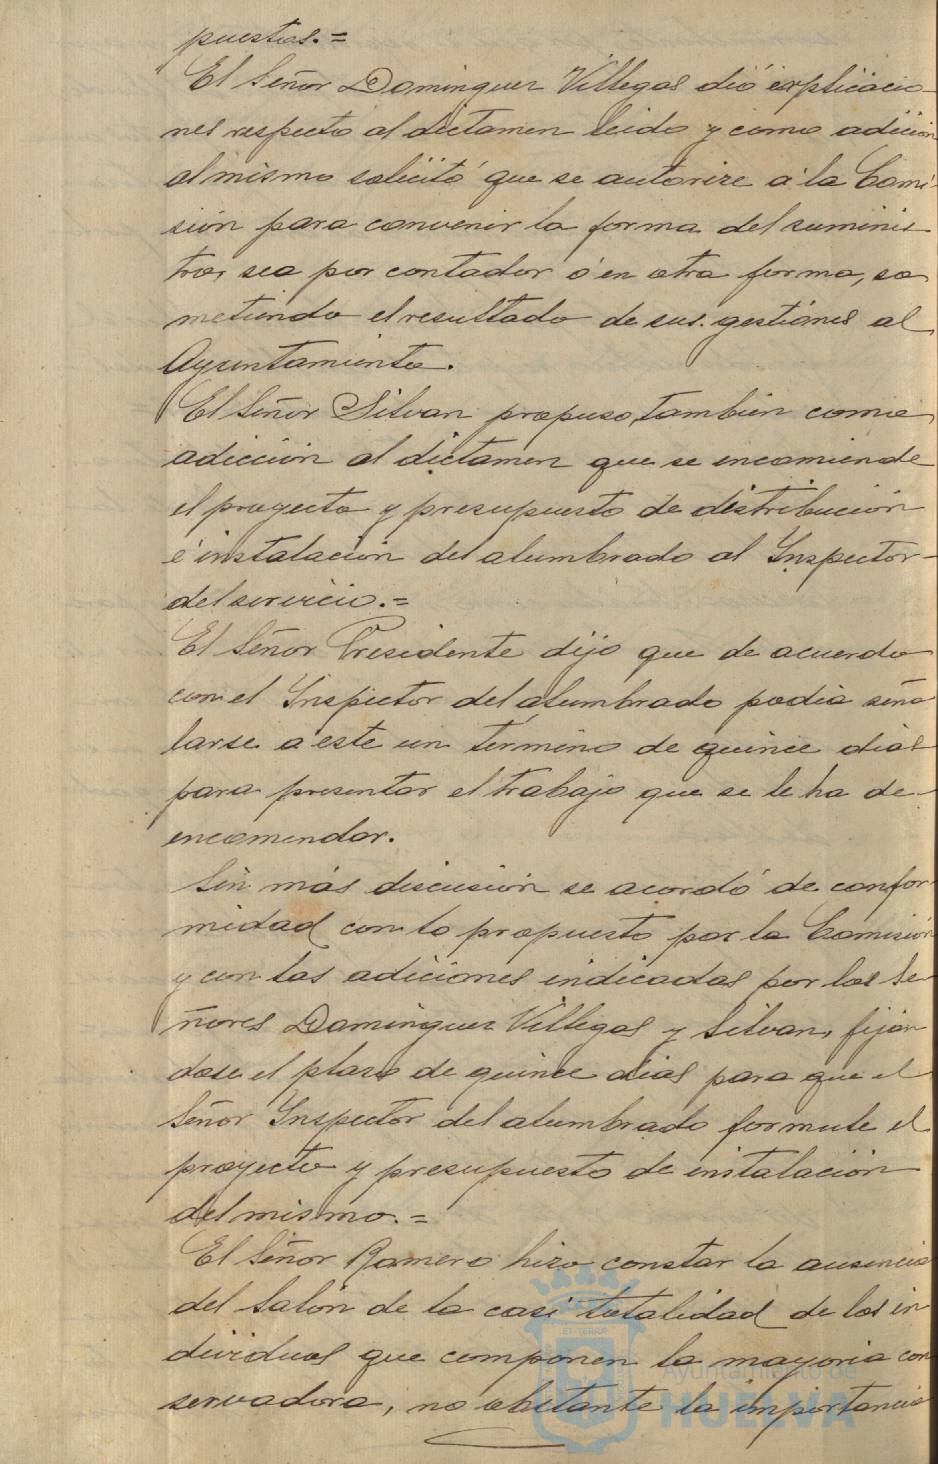 puestas.=
El Señor Dominguez Villegas dió explicacio-
nes respecto al dictamen leido y como adicion
al mismo solicitó que se autorize á la Comi-
sión para convenir la forma del suminis-
tro, sea por contador ó en otra forma, so
metiendo el resultado de sus gestiónes al
Ayuntamiento.
El Señor Silvan propuso, también como
adicción al dictamen que se encomiende
el proyecto y presupuesto de distribución
é instalación del alumbrado al Inspector-
del servicio.=
El Señor Presidente dijo que de acuerdo
con el Inspector del alumbrado podia seña
larse a este un término de quince dias
para presentar el trabajo que se le ha de-
encomendar.
Sin más discusión se acordó de confor
midad con lo propuesto por la Comisión
y con las adiciones indicadas por los Se-
ñores Dominguez Villegas y Silvan, fijan
dose el plazo de quince dias para que el
Señor Inspector del alumbrado formule el
proyecto y presupuesto de instalación
del mismo.=
El Señor Romero hizo constar la ausencia
del Salón de la casi totalidad de los in
dividuos que componen la mayoria con
servadora, no obstante la importancia
Ayuntamiento de
HUELVA